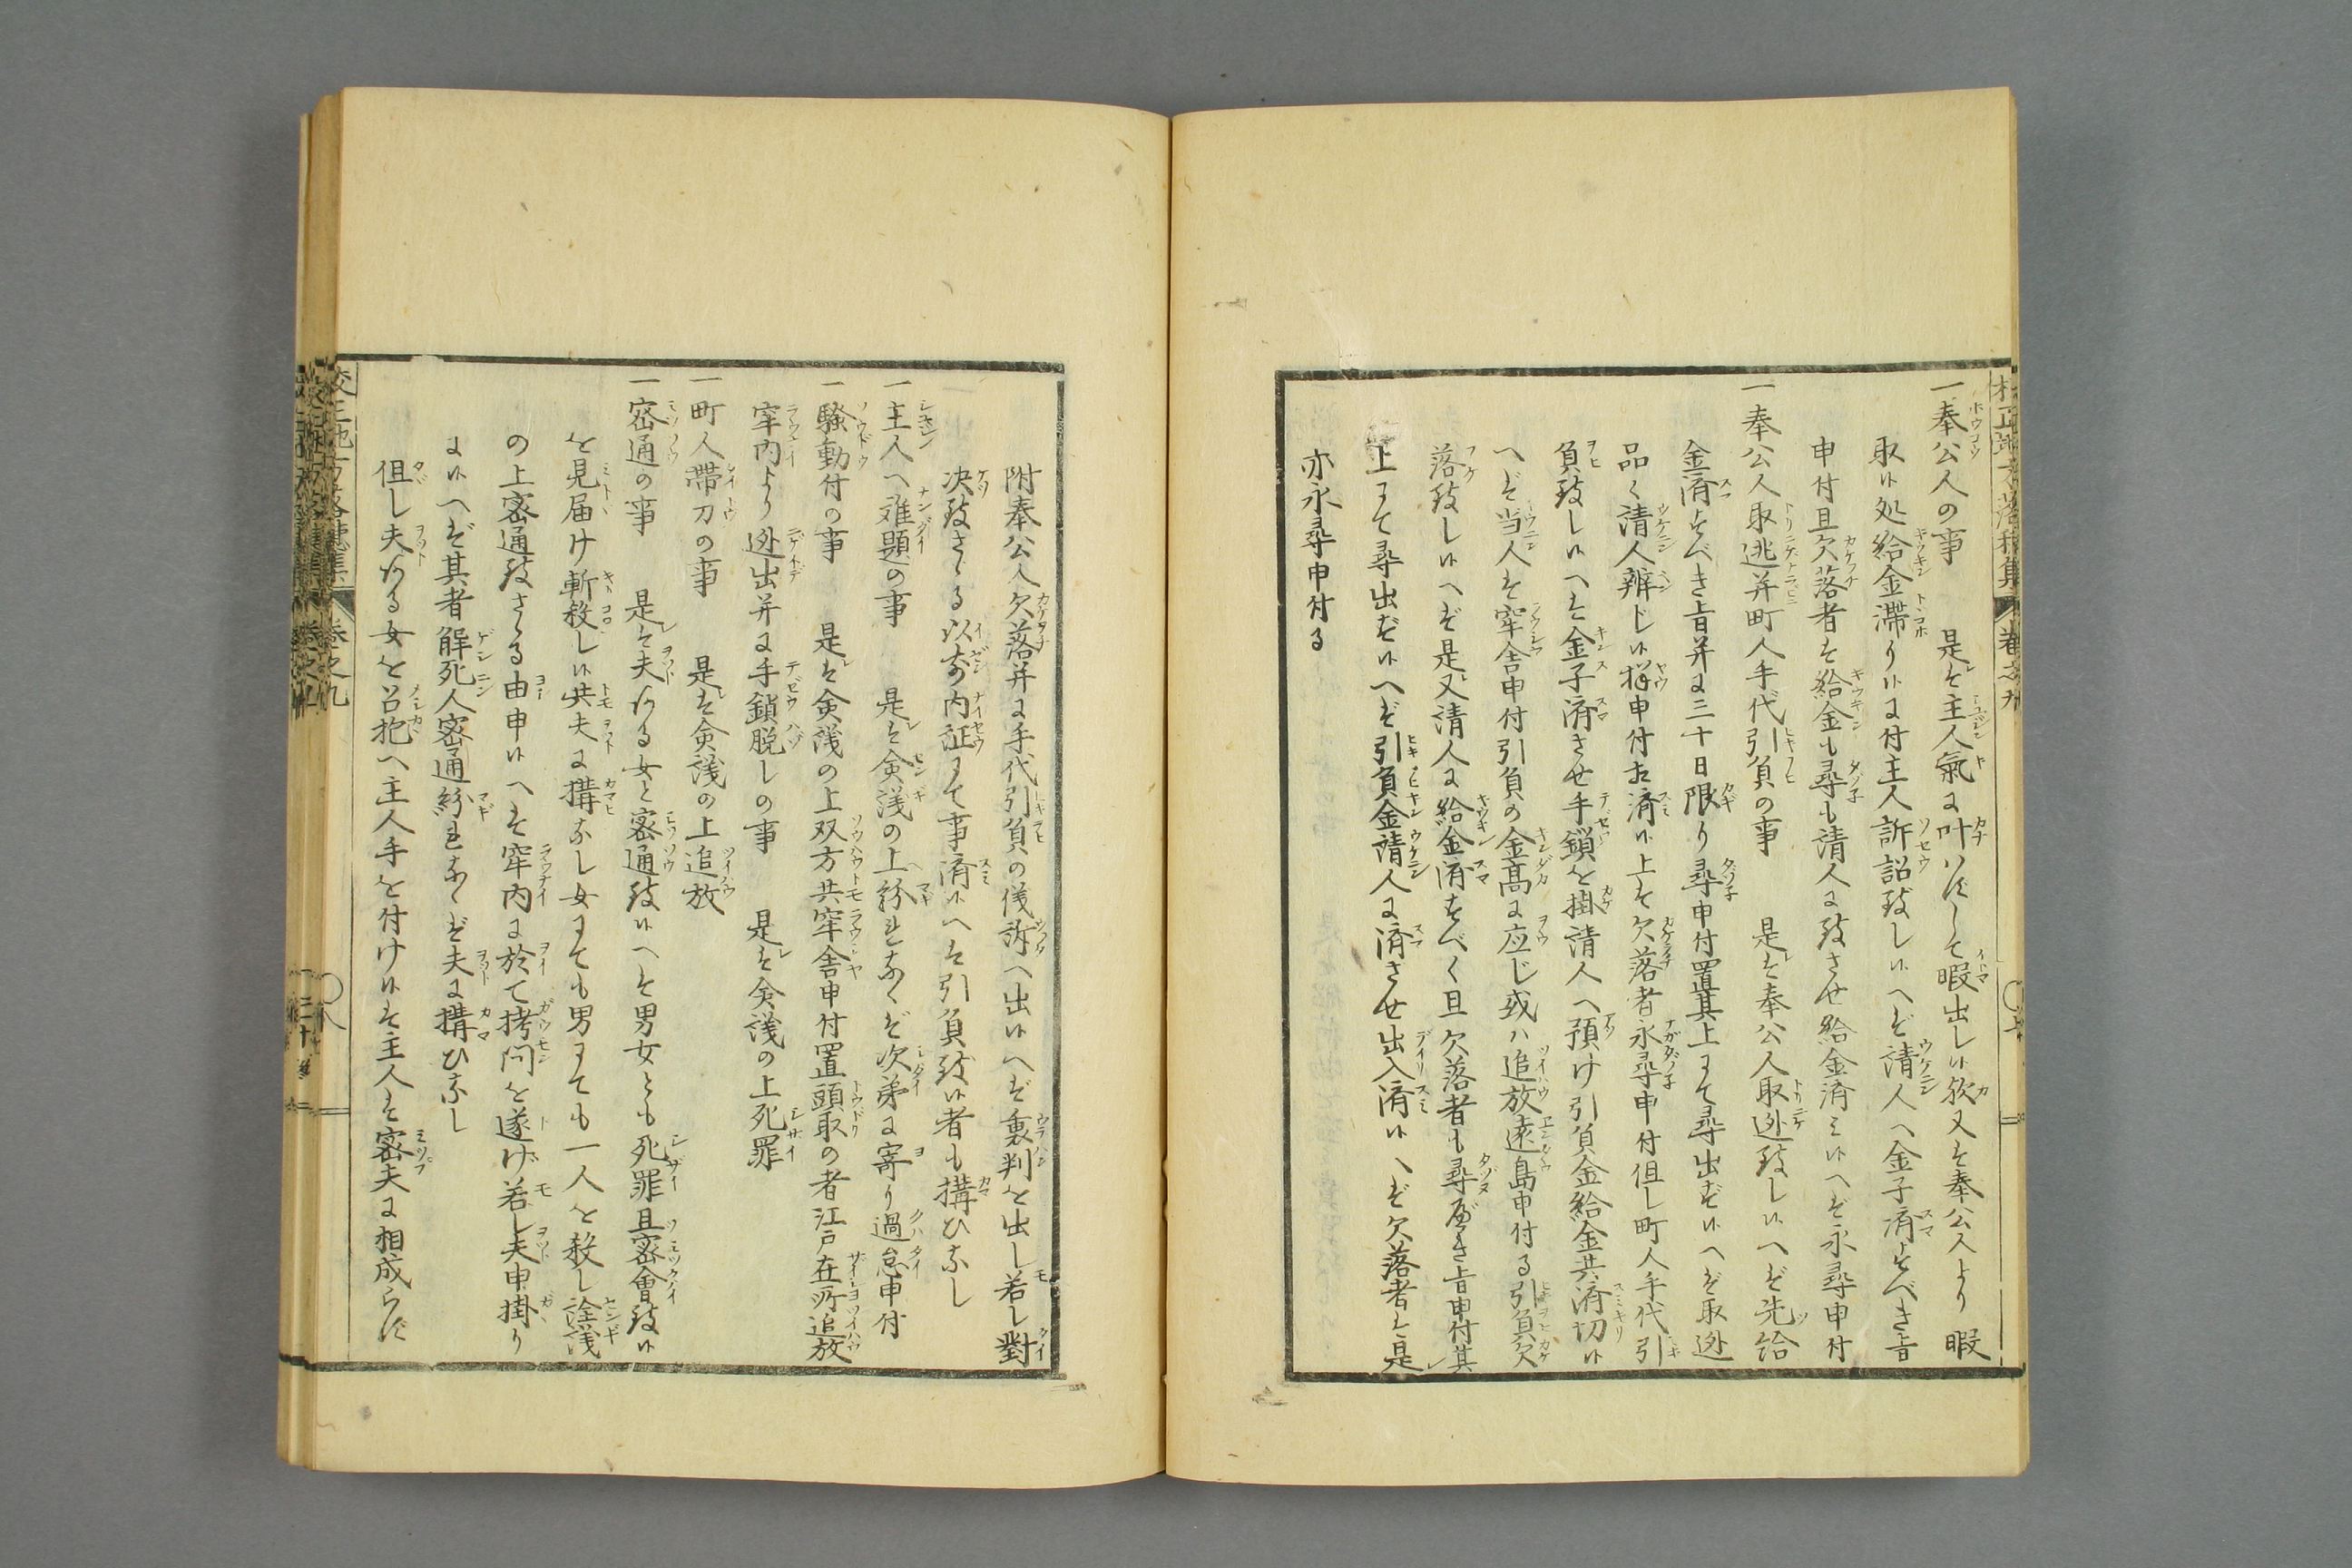 一奉公人の事　是は主人氣に叶はずして暇出し候欤又は奉公人より暇
取候処給金滞り候に付主人訴詔致し候へば請人へ金子済すべき旨
申付且欠落者は給金も尋も請人に致させ給金済み候へば永尋申付
一奉公人取逃并町人手代引負の事　是は奉公人取迯致し候へば先給
金済すべき旨并に三十日限り尋申付置其上にて尋出ず候へば取迯
品く請人辨じ候様申付相済候上は欠落者永尋申付但し町人手代引
負致し候へは金子済させ手鎖を掛請人へ預け引負金給金共済切候
へば当人は牢舎申付引負の金高に応じ或ハ追放遠島申付る引負欠
落致し候へば是又請人に給金済すべく且欠落者も尋べき旨申付其
上にて尋出ず候へば引負金請人に済させ出入済候へば欠落者は是
亦永尋申付る
附奉公人欠落并に手代引負の儀訴へ出候へば裏判を出し若し對
决致さゞる以前内証にて事済候へは引負致候者も搆ひなし
一主人へ难題の事　是は僉議の上紛れなくば次第に寄り過怠申付
一騒動付の事　是は僉議の上双方共牢舎申付置頭取の者江戸在所追放
牢内より迯出并に手鎖脱しの事　是は僉議の上死罪
一町人帶刀の事　是は僉議の上追放
一密通の事　是は夫ある女と密通致候へは男女とも死罪且密會致候
を見届け斬殺し候共夫に搆なし女にても男にても一人を殺し詮議
の上密通致さゞる由申候へは牢内に於て拷问を遂げ若し夫申掛り
に候へば其者解死人密通紛れなくば夫に搆ひなし
但し夫ある女を召抱へ主人手を付け候は主人は密夫に相成らず